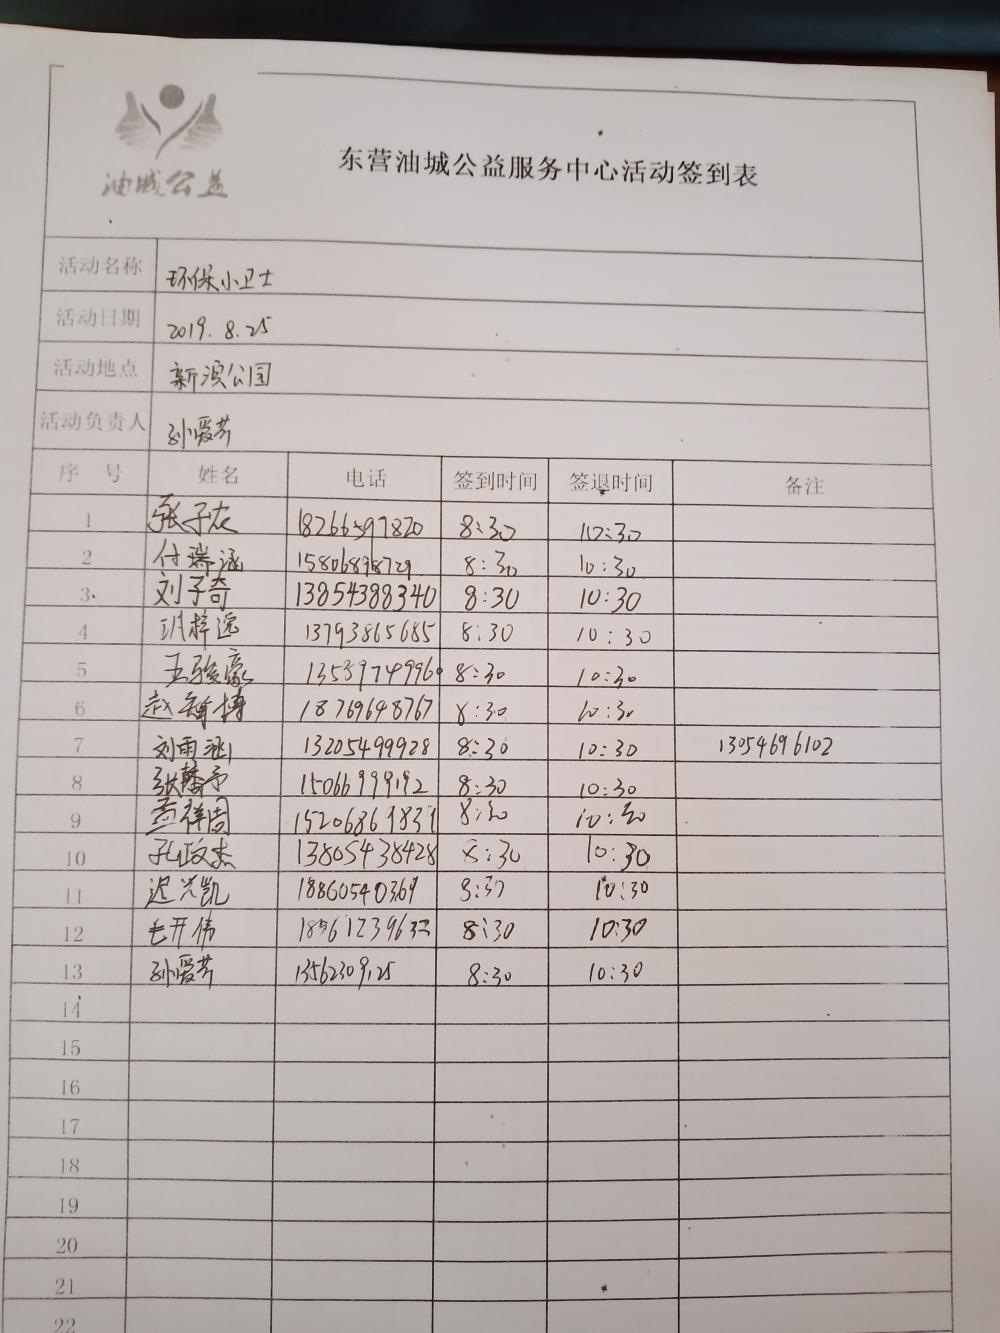 油城公益
东营油城公益服务中心活动签到表
活动名称 环保小卫士
活动日期 2019.8.25
活动地点 新滨公园
活动负责人 孙爱芳
序号 姓名 电话 签到时间 签退时间 备注
1 张子农 18266597820 8:30 10:30
2 付瑞涵 15806898729 8:30 10:30
3 刘子奇 13854388340 8:30 10:30
4 13793865685 8:30 10:30
5 王骏豪 13589749960 8:30 10:30
6 赵 博 18769648767 8:30 10:30
7 刘雨涵 13205499928 8:30 10:30 13054696102
8 15066999192 8:30 10:30
9 孟祥周 15206869839 8:30 10:30
10 孔政杰 13805438428 8:30 10:30
11 迟兴凯 18860540369 8:30 10:30
12 毛开伟 8:30 10:30
13 孙爱芳 13562309125 8:30 10:30
14
15
16
17
18
19
20
21
22